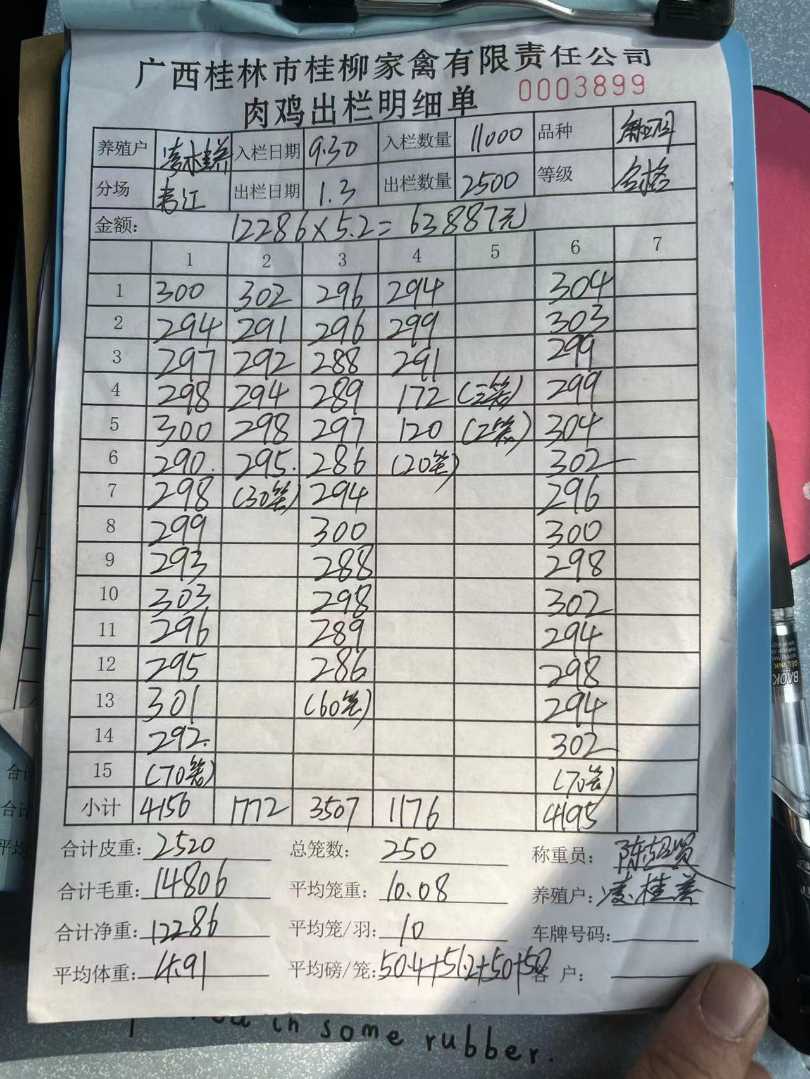 广西桂林市桂柳家禽有限责任公司
肉鸡出栏明细单 0003899
养殖户 入栏日期 9.30 入栏数量 11000 品种
分场 出栏日期 1.3 出栏数量 2500 等级 合格
金额: 12286×5.2=63887元
1 2 3 4 5 6 7
1 300 302 296 294 304
2 294 291 296 299 303
3 297 292 288 291 299
4 298 294 289 172 (3笼) 299
5 300 298 297 120 (2笼) 304
6 290. 295. 286 (20笼) 302
7 298 (30笼) 294 296
8 299 300 300
9 293 288 298
10 303 298 302
11 296 289 294
12 295 286 298
13 301 (60笼) 294
14 292. 302
15 (70笼) (70笼)
小计 4156 1772 3507 1176 4195
合计皮重: 2520 总笼数: 250 称重员:
合计毛重: 14806 平均笼重: 10.08 养殖户: 凌桂养
合计净重: 12286 平均笼/羽: 10 车牌号码:
平均体重: 4.91 平均磅/笼: 50.4+51.2+50+50 客户:
in some rubber.
合计
合计
平均